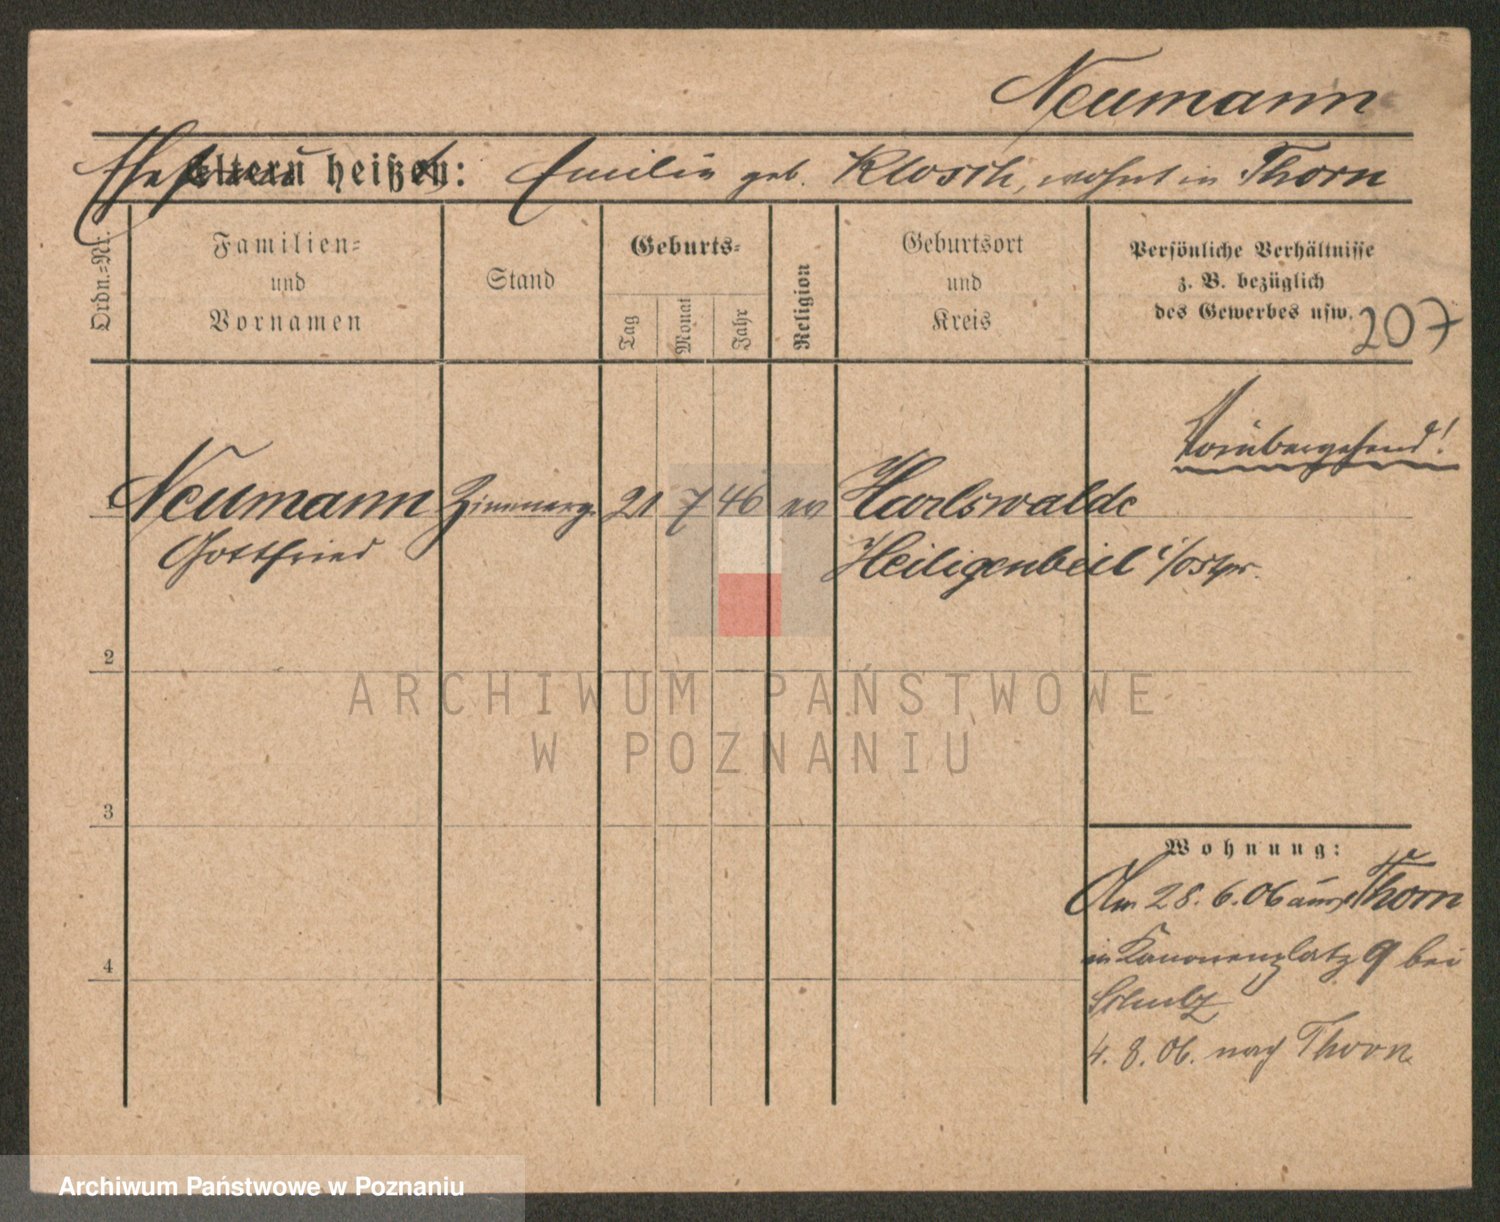 Neumann
Ehefrau
Eltern heißen: Emilie geb. Klosch, wohnt in Thorn
Ordn.-Nr.
Familien-
und
Vornamen
Stand
Geburts-
Tag
Monat
Jahr
Religion
Geburtsort
und
Kreis
Persönliche Verhältnisse
z. B. bezüglich
des Gewerbes usw.
207
Vorübergehend!
1 Neumann Zimmerg. 21 7 46 ev Karlswalde
Gottfried Heiligenbeil i/Ostpr.
2
3
4
Wohnung:
Am 28.6.06 aus Thorn
in Kanonenplatz 9 bei
Schulz
4.8.06. nach Thorn
ARCHIWUM PAŃSTWOWE
W POZNANIU
Archiwum Państwowe w Poznaniu